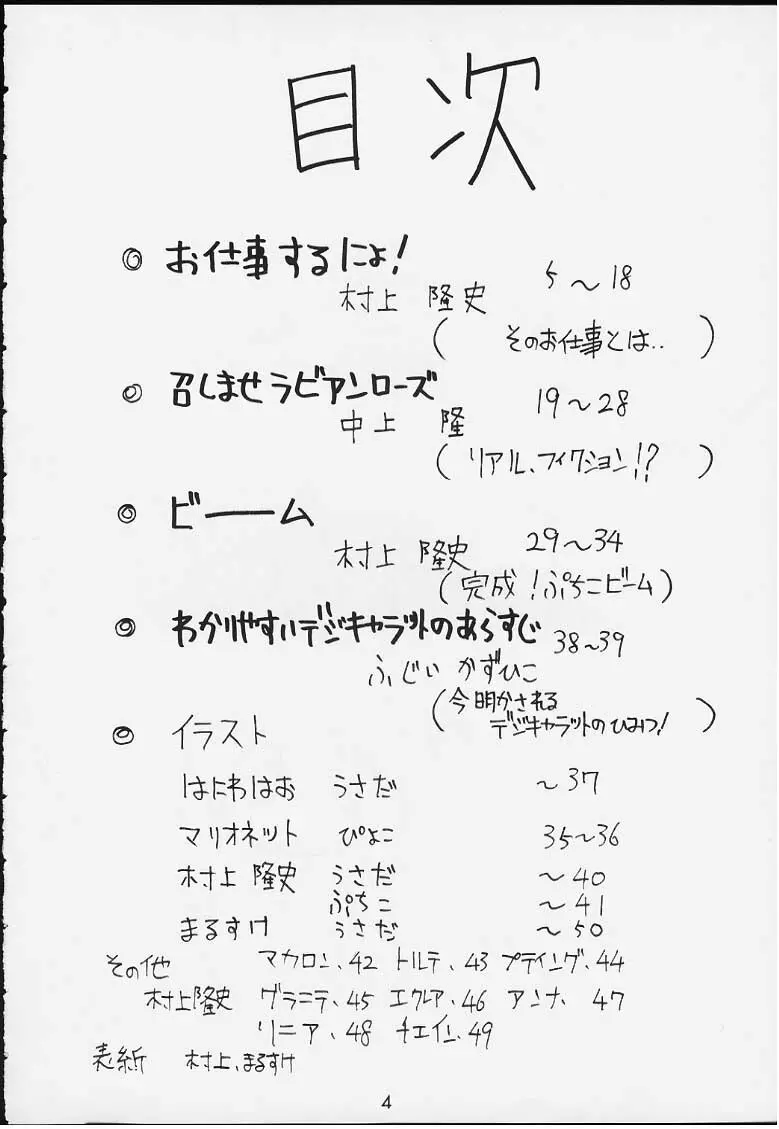 目次
◎ お仕事するにょ!
村上 隆史 5〜18
( そのお仕事とは.. )
◎ 召しませラビアンローズ
中上 隆 19〜28
( リアル、フィクション!? )
◎ ビーーム
村上 隆史 29〜34
(完成!ぷちこビーム)
◎ わかりやすいデジキャラットのあらすじ 38〜39
ふじい かずひこ
(今明かされる
デジキャラットのひみつ! )
◎ イラスト
はにわはお うさだ 〜37
マリオネット ぴよこ 35〜36
村上 隆史 うさだ 〜40
ぷちこ 〜41
まるすけ うさだ 〜50
その他 マカロン、42 トルテ、43 プティング、44
村上隆史 グラニテ、45 エクレア、46 アンナ、47
リニア、48 チェイン、49
表紙 村上、まるすけ
4